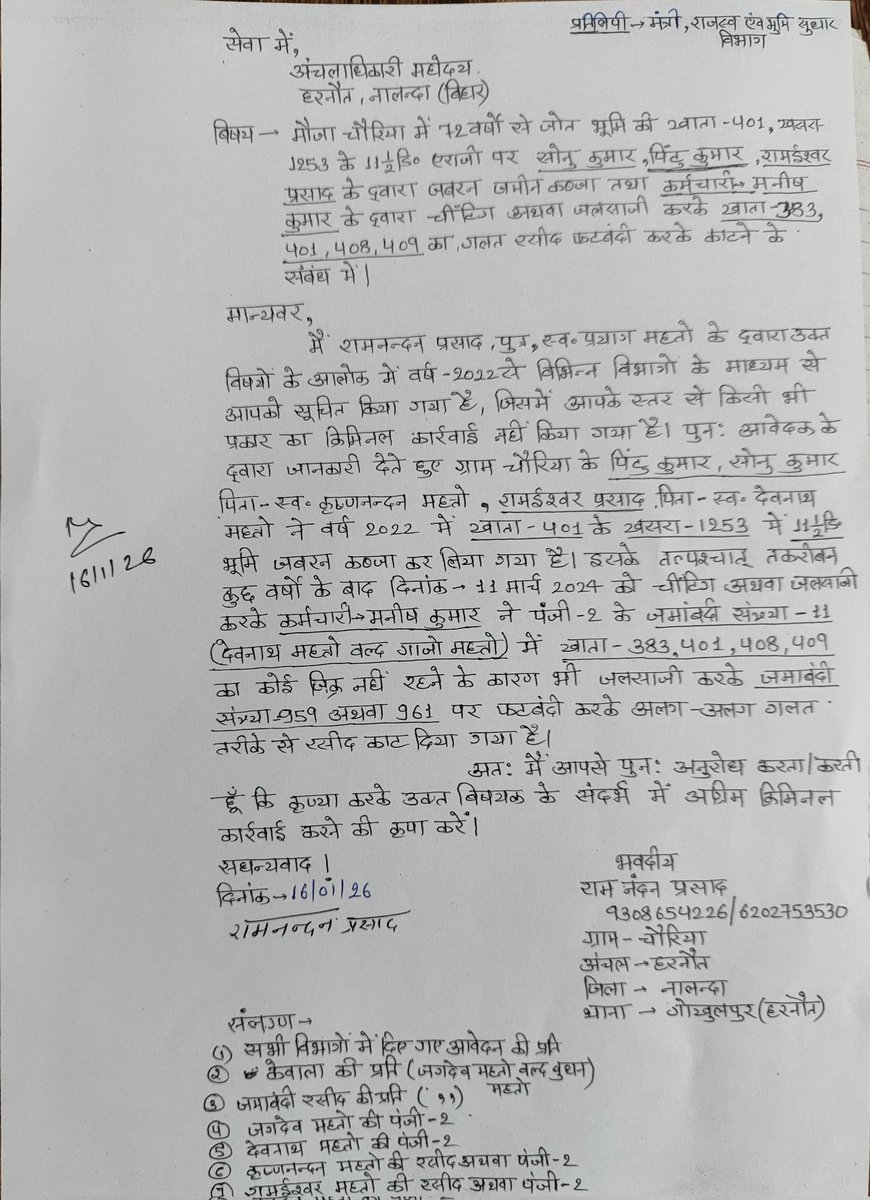 प्रतिलिपी → मंत्री, राजस्व एंव भूमि सुधार
विभाग
सेवा में,
अंचलाधिकारी महोदय.
हरनौत, नालन्दा (बिहार)
विषय → मौजा चौरिया में 72 वर्षो से जोत भूमि की खाता -401, खसरा-
1253 के 11½ डि० एराजी पर सोनु कुमार, पिंटु कुमार, रामईश्वर
प्रसाद के द्वारा जबरन जमीन कब्जा तथा कर्मचारी→ मनीष
कुमार के द्वारा चींटिंग अथवा जलसाजी करके खाता-383,
401, 408, 409 का गलत रसीद फटबंदी करके काटने के
संबंध में।
मान्यवर,
मैं रामनन्दन प्रसाद, पुत्र, स्व० प्रयाग महतो के द्वारा उक्त
विषयों के आलोक में वर्ष -2022 से विभिन्न विभागों के माध्यम से
आपको सूचित किया गया है, जिसमें आपके स्तर से किसी भी
प्रकार का क्रिमिनल कार्रवाई नहीं किया गया है। पुन: आवेदक के
द्वारा जानकारी देते हुए ग्राम चौरिया के पिंटु कुमार, सोनु कुमार
पिता - स्व० कृष्णनन्दन महतो, रामईश्वर प्रसाद, पिता - स्व० देवनाथ
महतो ने वर्ष 2022 में खाता -401 के खसरा -1253 में 11½ डि
भूमि जबरन कब्जा कर लिया गया है। इसके तत्पश्चात् तकरीबन
कुछ वर्षों के बाद दिनांक → 11 मार्च 2024 को चींटिंग अथवा जलसाजी
करके कर्मचारी→ मनीष कुमार ने पंजी-2 के जमांबंदी संख्या -11
(देवनाथ महतो वल्द गाजो महतो) में खाता - 383, 401, 408, 409
का कोई जिक्र नहीं रहने के कारण भी जलसाजी करके जमाबंदी
संख्या-959 अथवा 961 पर फटबंदी करके अलग-अलग गलत
तरीके से रसीद काट दिया गया है।
अत: मैं आपसे पुन: अनुरोध करता/करती
हूँ कि कृप्या करके उक्त विषयक के संदर्भ में अग्रिम क्रिमिनल
कार्रवाई करने की कृपा करें।
सधन्यवाद।
दिनांक → 16/01/26
रामनन्दन प्रसाद
भवदीय
राम नंदन प्रसाद
9308654226/6202753530
ग्राम - चौरिया
अंचल → हरनौत
जिला → नालन्दा
थाना → गोखुलपुर (हरनौत)
16/1/26
संलग्ण →
① सभी विभागों में दिए गए आवेदन की प्रति
② केवाला की प्रति (जगदेव महतो वल्द बुधन)
महतो
③ जमाबंदी रसीद की प्रति ( ,, )
④ जगदेव महतो की पंजी-2
⑤ देवनाथ महतो की पंजी-2
⑥ कृष्णनन्दन महतो की रसीद अथवा पंजी-2
⑦ रामईश्वर महतो की रसीद अथवा पंजी-2